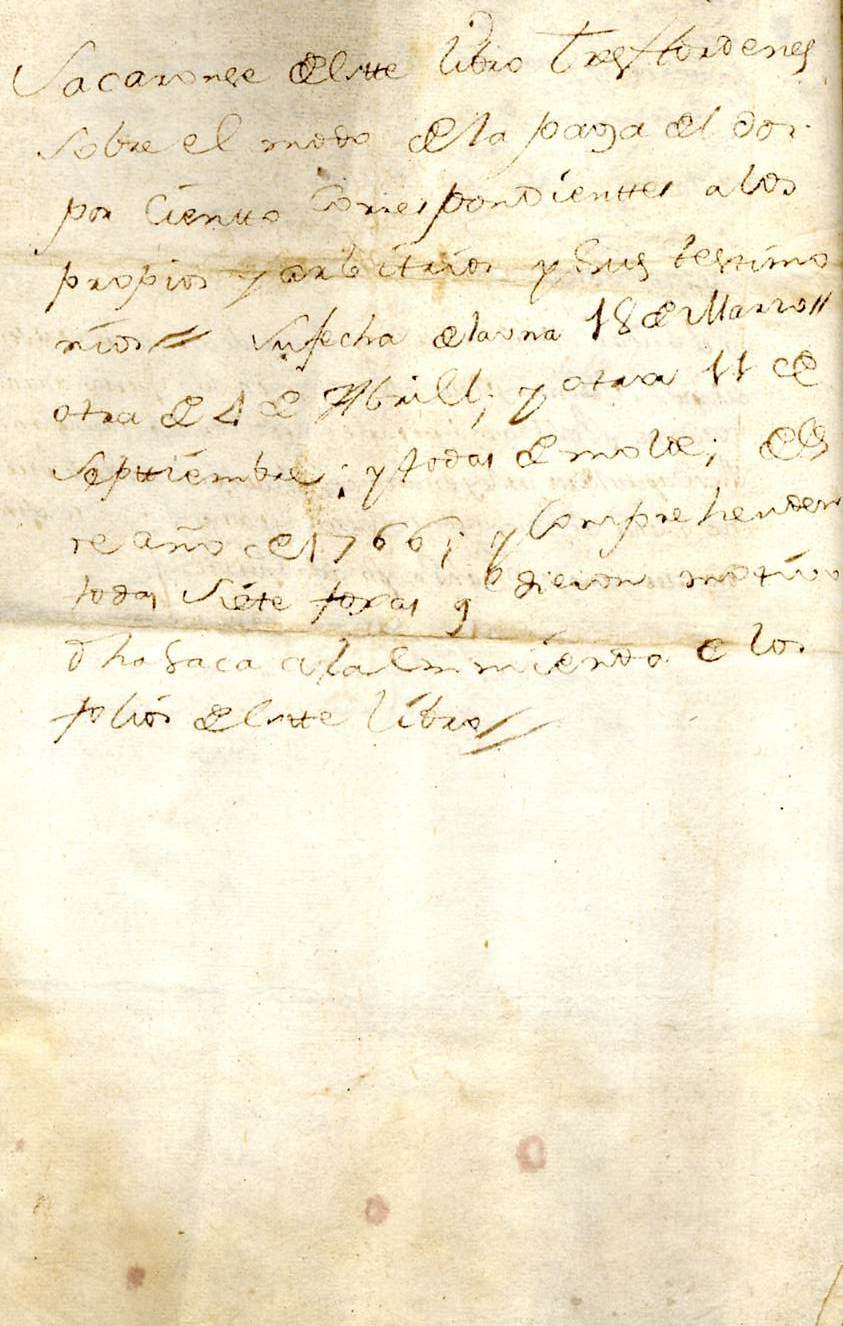 Sacaronse de estte libro tres hordenes
sobre el modo de la paga del dos
por cientto correspondienttes a los
propios y arbitrios y sus testimo
nios // su fecha de la una 18 de Marzo //
otra de 4 de Abrill; y otra 11 de
Septtiembre; y todas de molde; de es
te año de 1766; y comprehenden
todas siete foxas q dieron motivo
dha saca a la enmienda de los
folios de estte libro //